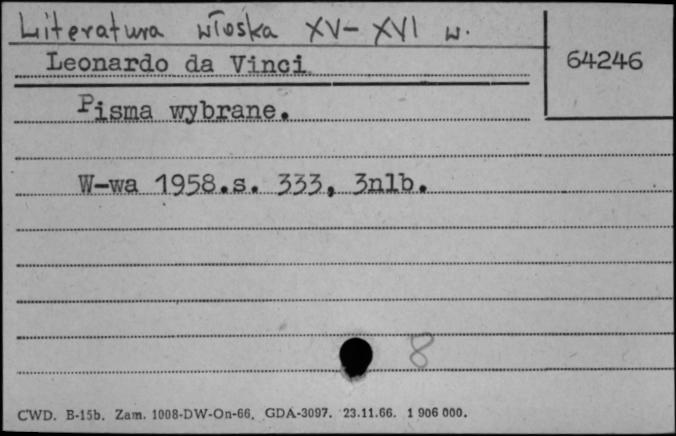 Literatura włoska XV-XVI w.
64246
Leonardo da Vinci
Pisma wybrane.
W-wa 1958.s. 333, 3nlb.
8
CWD. B-15b. Zam. 1008-DW-On-66. GDA-3097. 23.11.66. 1 906 000.